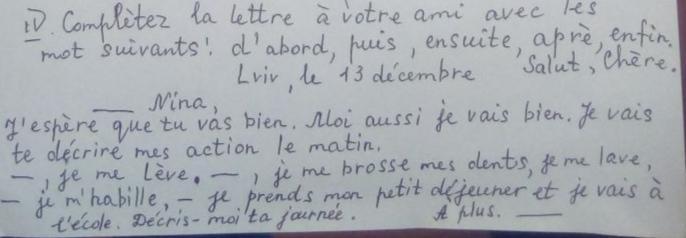 IV. Complétez la lettre à votre ami avec les
mot suivants: d'abord, puis, ensuite, aprè, enfin.
Lviv, le 13 décembre Salut, Chère.
___ Nina,
J'espère que tu vas bien. Moi aussi je vais bien. Je vais
te décrire mes action le matin.
—, je me lève. —, je me brosse mes dents, je me lave,
— je m'habille, — je prends mon petit déjeuner et je vais à
l'école. Décris-moi ta journée. À plus. ___